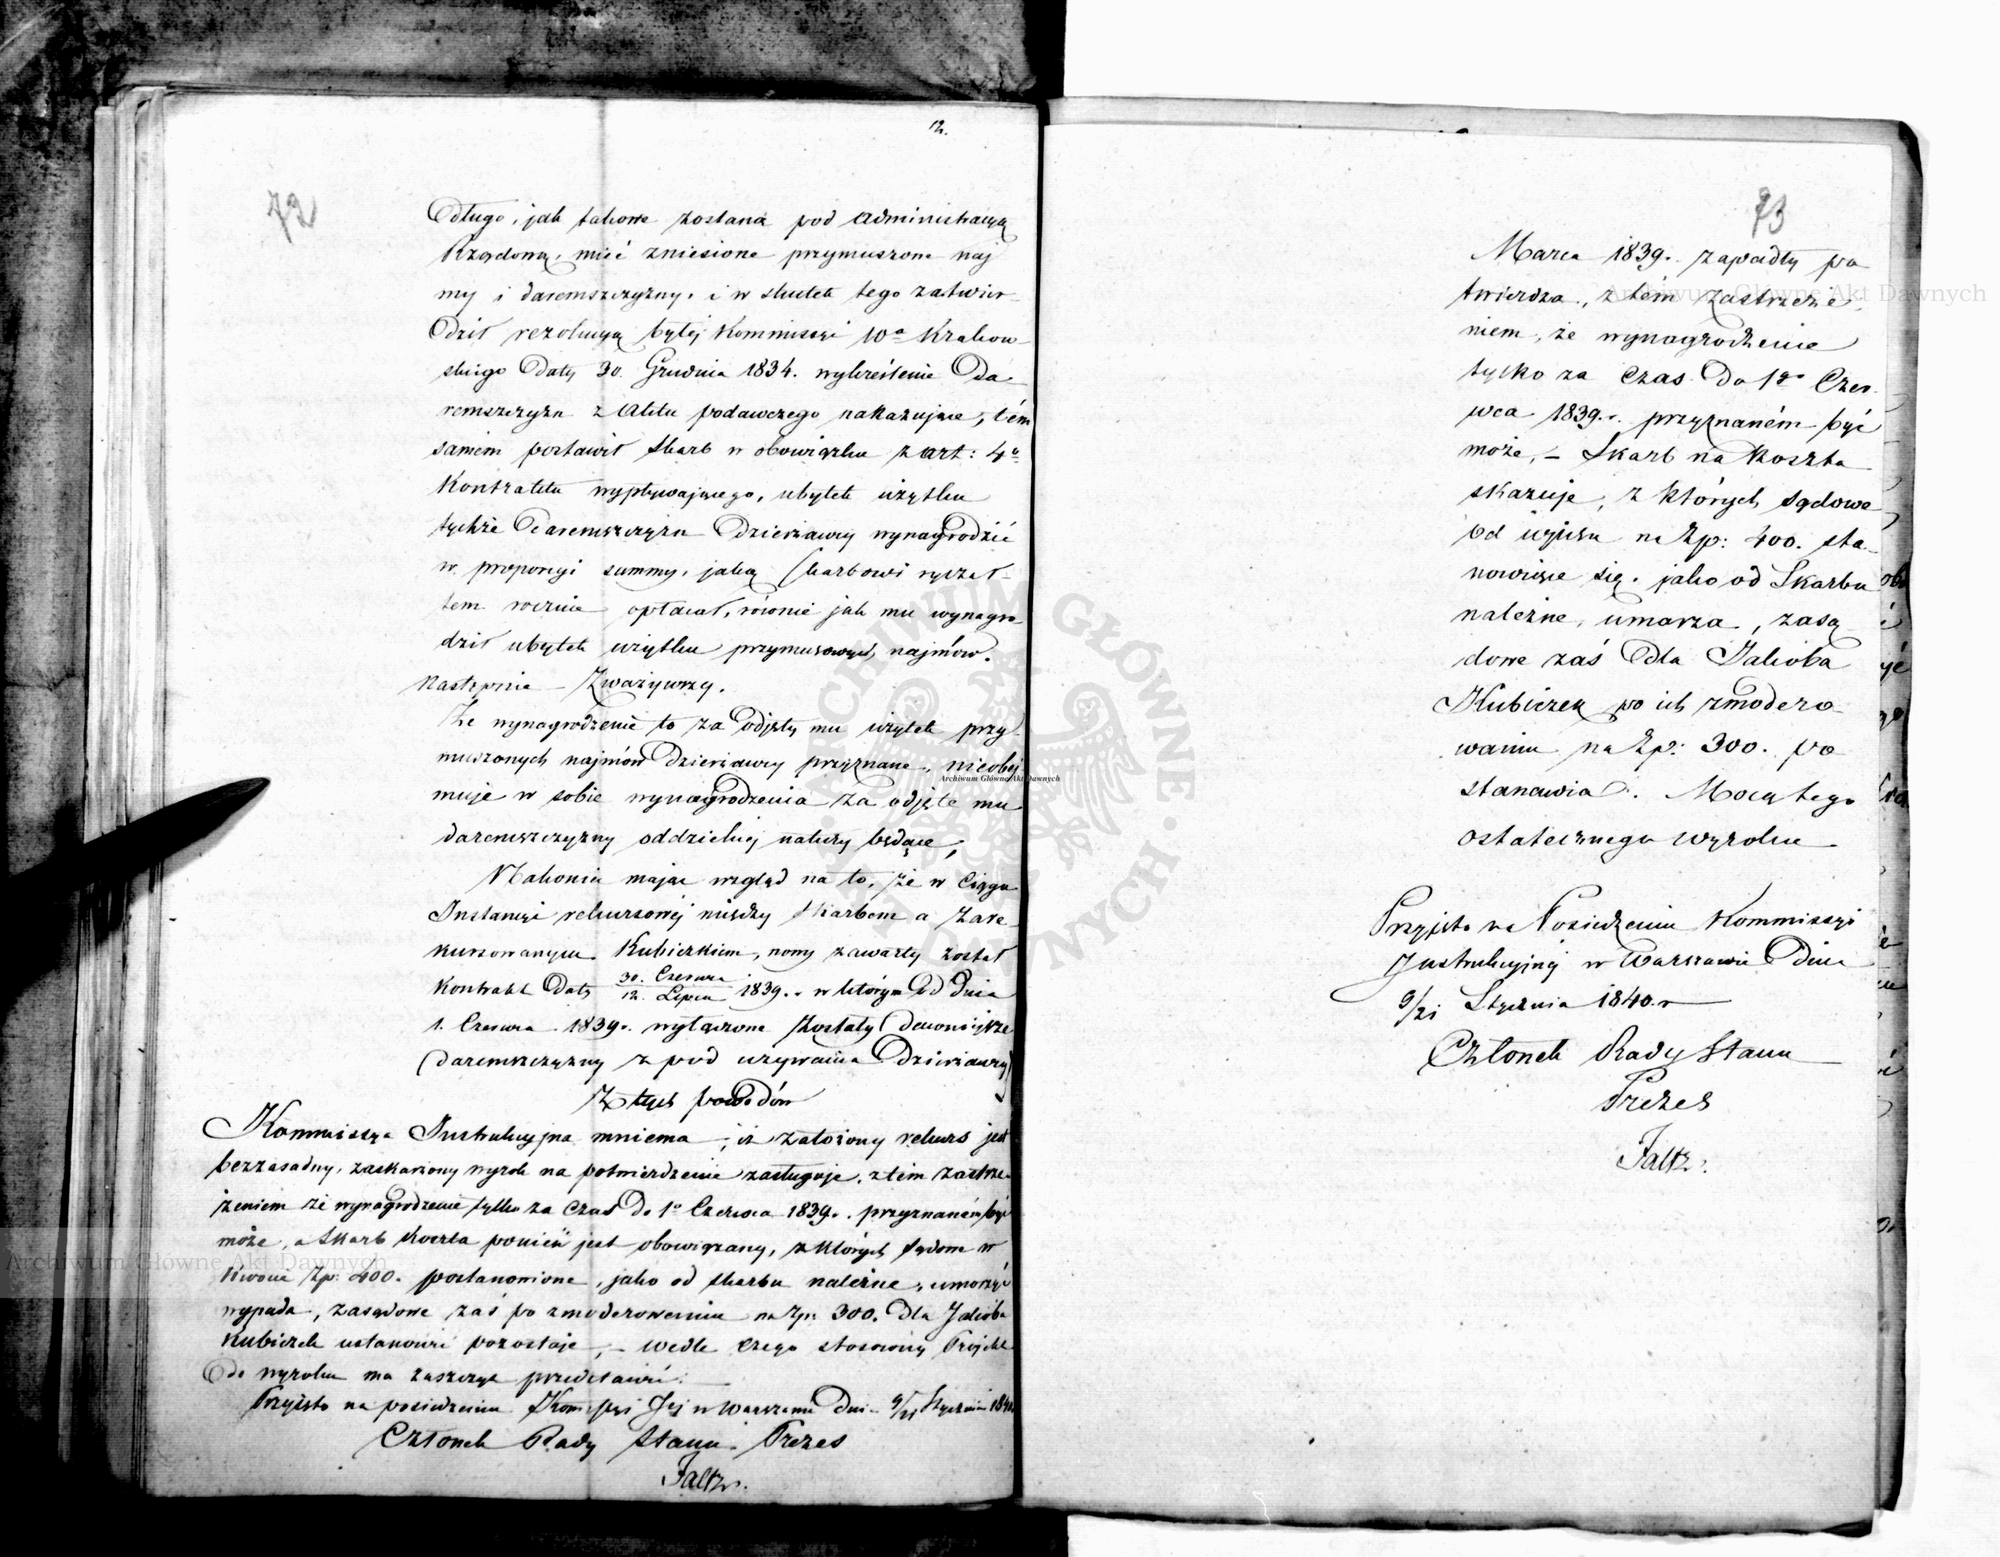 12.
72
Długo, jak takowe zostaną pod administracyą
Rządową, mieć zniesione przymuszone naj
my i daremszczyzny, i w skutek tego zatwier-
dził rezolucyą byłej Kommissyi Wa Krakow-
skiego Daty 30. Grudnia 1834. wykreślenie Da-
remszczyzn z Aktu podawczego nakazujące, tém
samém postawił Skarb w obowiązku z art: 4o
Kontraktu wypływającego, ubytek użytku
tychże Daremszczyzn Dzierżawcy wynagrodzić
w proporcyi summy, jaką Skarbowi ryczał-
tem rocznie opłacał, równie jak mu wynagro
dził ubytek użytku przymusowych najmów.
Następnie – Zważywszy.
Że wynagrodzenie to za odjęty mu użytek przy
muszonych najmów Dzierżawcy przyznane, nieobej
muje w sobie wynagrodzenia za odjęte mu
daremszczyzny oddzielnej natury będące,
Nakoniec mając wzgląd na to, że w Ciągu
Instancyi rekursowej między Skarbem a Zare-
kursowanym Kubiczkiem, nowy zawarty został
Kontrakt Daty 30. Czerwca / 12. Lipca 1839. w którym od Dnia
1. Czerwca 1839. wyłączone zostały
daremszczyzny z pod używania Dzierżawcy
Z tych powodów
Kommissya Instrukcyjna mniema, iż założony rekurs jest
bezzasadny, zaskarżony wyrok na potwierdzenie zasługuje, z tém zastrze-
żeniem że wynagrodzenie tylko za czas Do 1o Czerwca 1839. przyznaném być
może, a Skarb koszta ponieść jest obowiązany, z których sądowe w
kwocie Zp: 400. postanowione, jako od Skarbu należne, umorzyć
wypada, zasądowe zaś po zmoderowaniu na Zp: 300. Dla Jakóba
Kubiczek ustanowić pozostaje, – wedle czego stosowny Projekt
Do wyroku ma zaszczyt przedstawić.
Przyjęto na posiedzeniu Kommissyi Jnej w Warszawie Dnia 9/21 Stycznia 1840.
Członek Rady Stanu Prezes
Faltz.
73
Marca 1839. zapadły po
twierdza, z tém zastrzeże-
niem, że wynagrodzenie
tylko za czas Do 1go Czer-
wca 1839. r. przyznaném być
może, – Skarb na koszta
skazuje, z których sądowe
od wpisu na Zp: 400. sta-
nowiące się, jako od Skarbu
należne, umarza, zasą-
dowe zaś Dla Jakóba
Kubiczek po ich zmodero-
waniu na Zp: 300. po
stanawia. Mocą tego
ostatecznego wyroku
Przyjęto na Posiedzeniu Kommissyi
Instrukcyjnej w Warszawie Dnia
9/21 Stycznia 1840. r
Członek Rady Stanu
Prezes
Faltz.
Archiwum Główne Akt Dawnych
Archiwum Główne Akt Dawnych
Archiwum Główne Akt Dawnych
ARCHIWUM GŁÓWNE AKT DAWNYCH